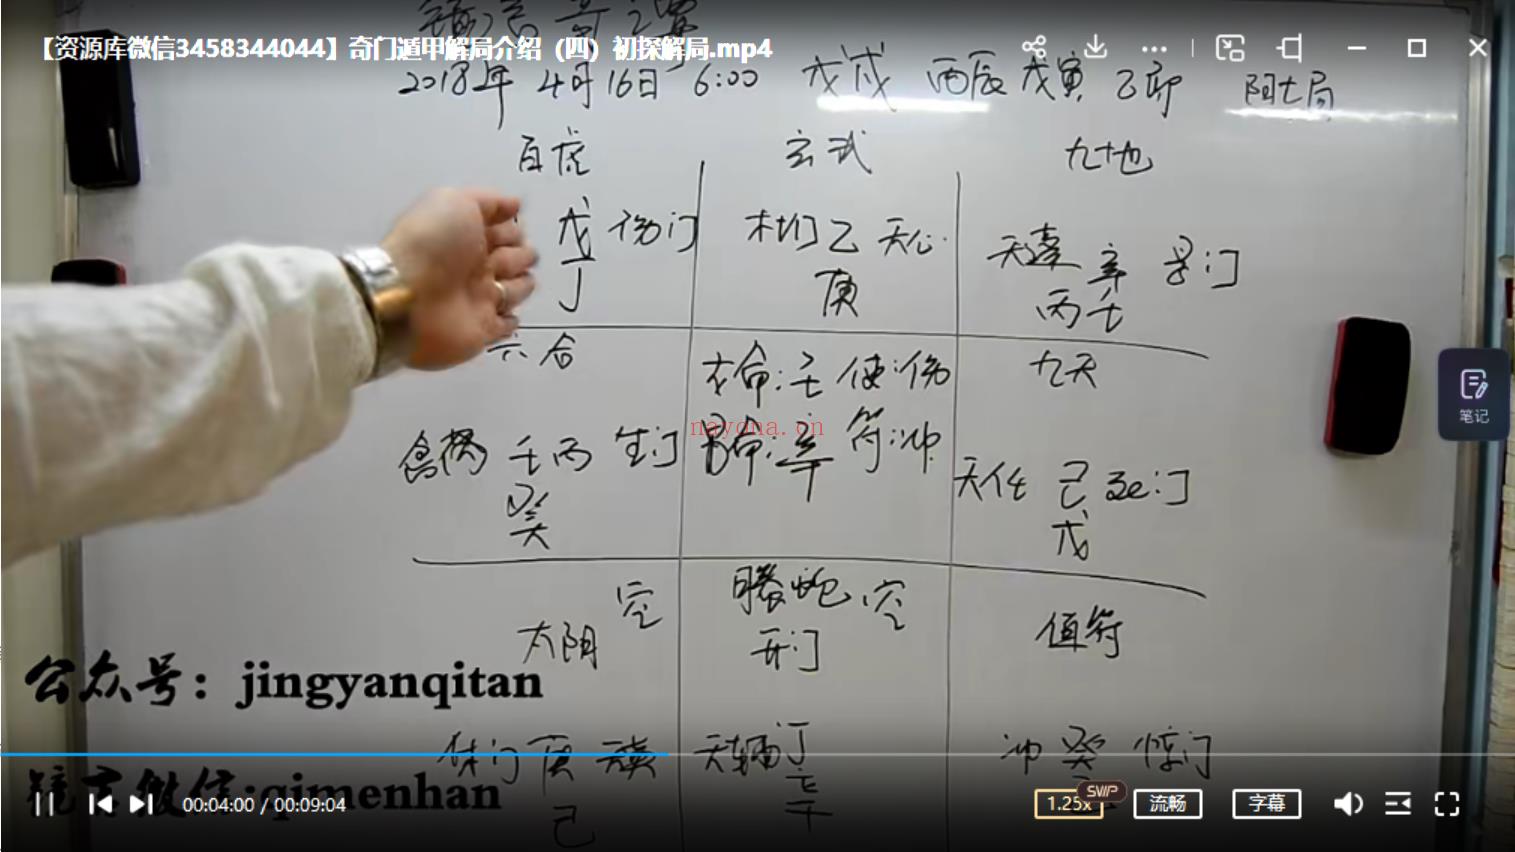 【资源库微信3458344044】奇门遁甲解局介绍（四）初探解局.mp4
2018年 4月16日 6:00 戊戌 丙辰 戊寅 乙卯 阳七局
白虎 玄武 九地
戊 伤门 杜门 乙 天心 天蓬 辛 景门
丁 庚 丙 壬
六合 女命:壬 使:伤 九天
nayona.cn
男命:辛 符:冲
禽芮 壬丙 生门 天任 己 死门
癸 戊
空 螣蛇 空
太阴 开门 值符
公众号：jingyanqitan
休门 庚 天英 天辅 丁 冲 癸 惊门
镜言微信:qimenhan
辛
己
00:04:00 / 00:09:04
1.25x
SVIP
流畅
字幕
笔记